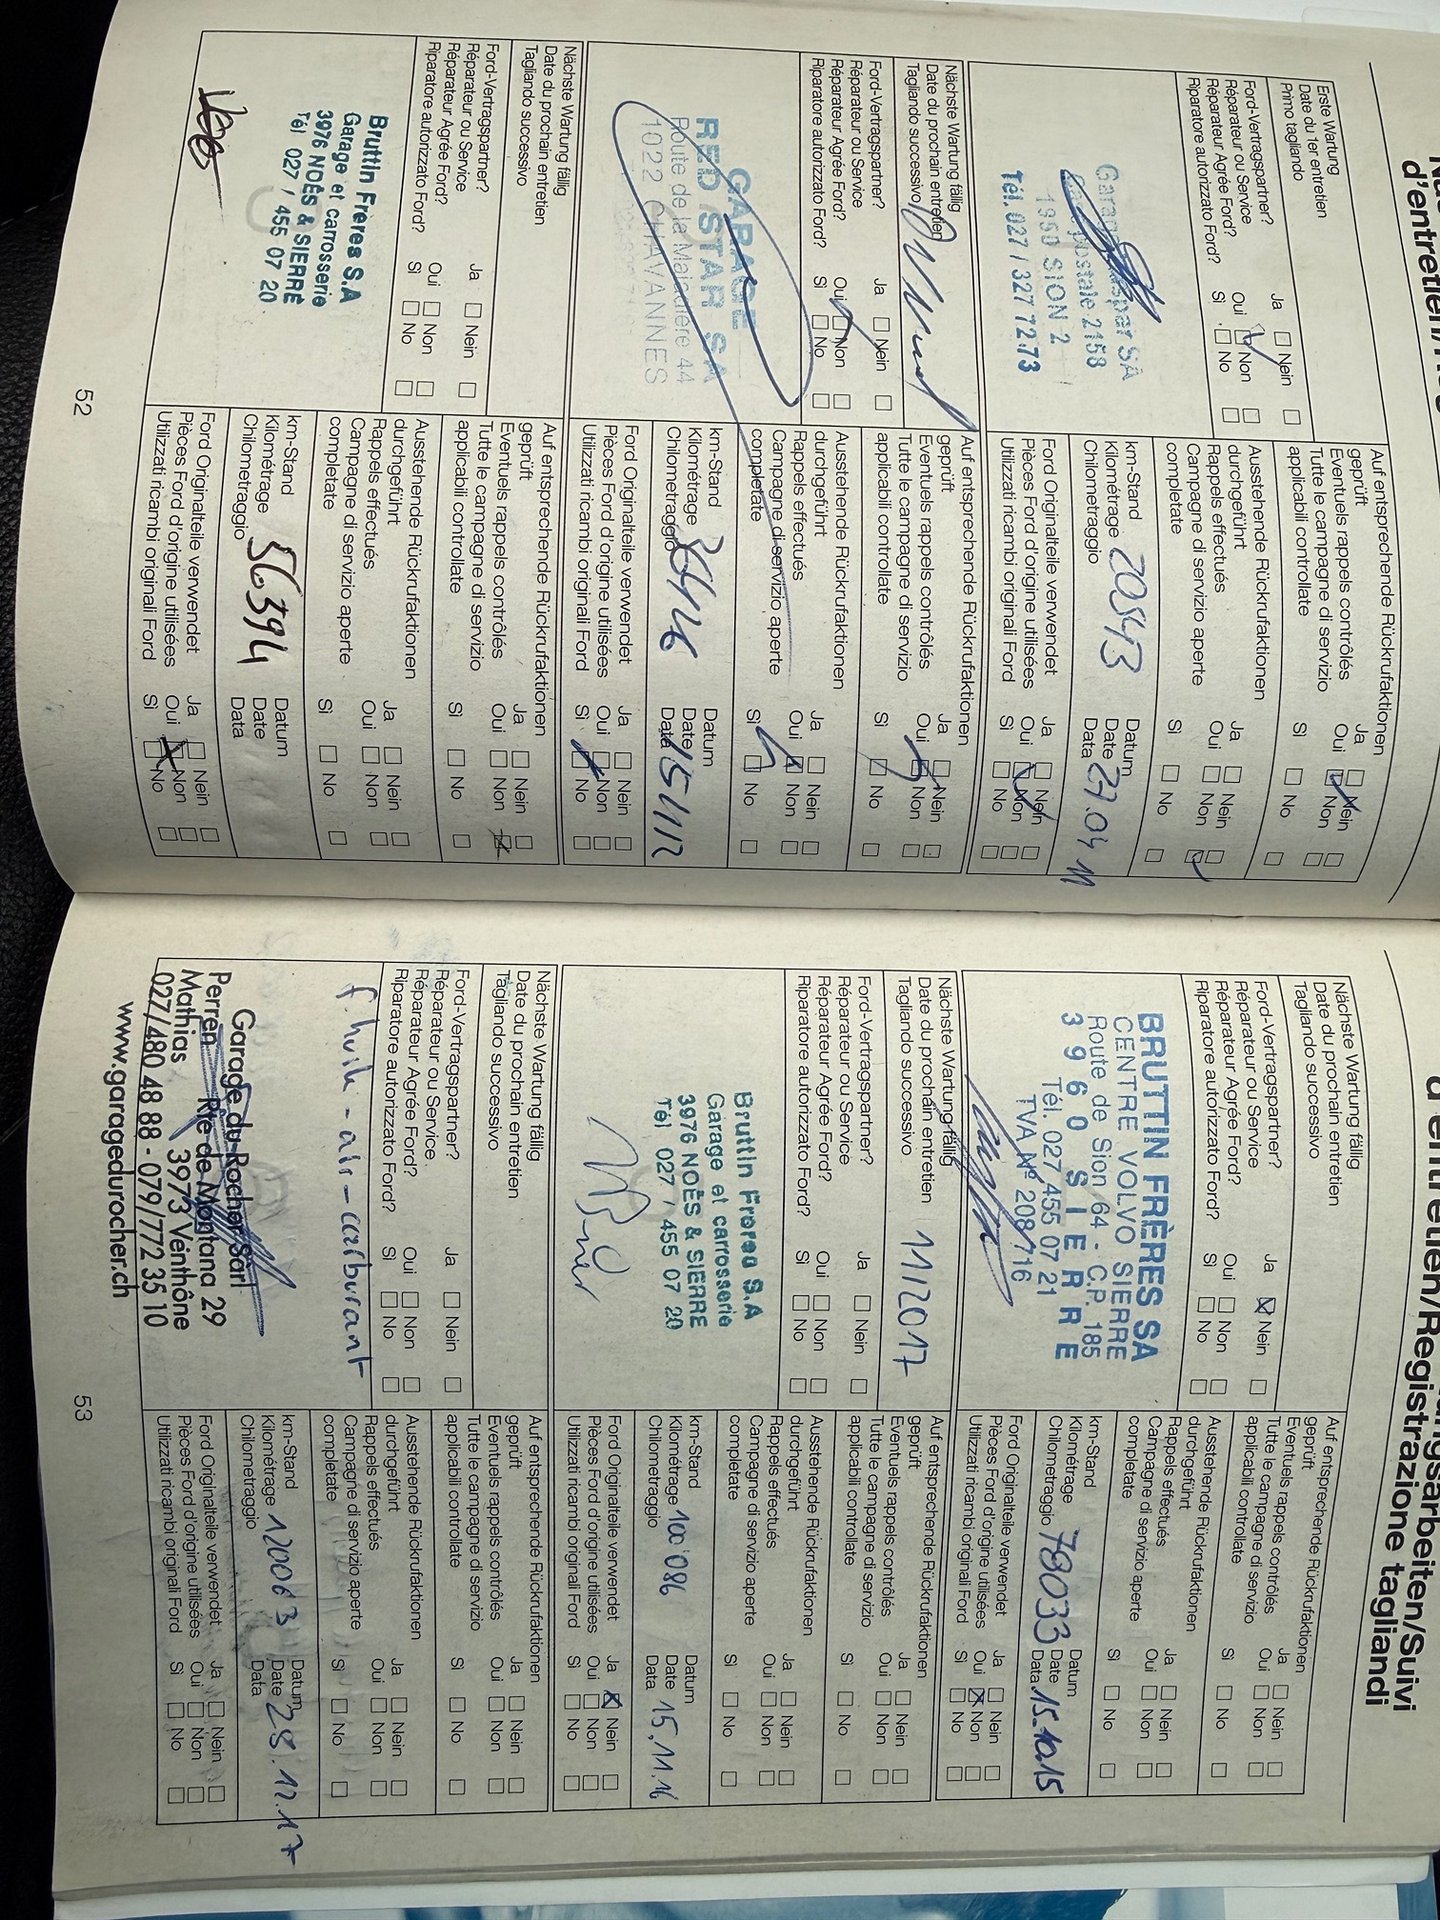 d'entretien/Re
Erste Wartung
Date du 1er entretien
Primo tagliando
Ford-Vertragspartner?
Réparateur ou Service
Réparateur Agrée Ford?
Riparatore autorizzato Ford?
Ja Nein
Oui Non
Sì No
SA
postale 2158
1950 SION 2
Tél. 027 / 327 72 73
Auf entsprechende Rückrufaktionen
geprüft
Eventuels rappels contrôlés
Tutte le campagne di servizio
applicabili controllate
Ja Nein
Oui Non
Sì No
Ausstehende Rückrufaktionen
durchgeführt
Rappels effectués
Campagne di servizio aperte
completate
Ja Nein
Oui Non
Sì No
km-Stand
Kilométrage 20543
Chilometraggio
Datum
Date 27.04 11
Data
Ford Originalteile verwendet
Pièces Ford d'origine utilisées
Utilizzati ricambi originali Ford
Ja Nein
Oui Non
Sì No
Nächste Wartung fällig
Date du prochain entretien
Tagliando successivo
Ford-Vertragspartner?
Réparateur ou Service
Réparateur Agrée Ford?
Riparatore autorizzato Ford?
Ja Nein
Oui Non
Sì No
GARAGE
RED STAR SA
Route de la Maladière 44
1022 CHAVANNES
Auf entsprechende Rückrufaktionen
geprüft
Eventuels rappels contrôlés
Tutte le campagne di servizio
applicabili controllate
Ja Nein
Oui Non
Sì No
Ausstehende Rückrufaktionen
durchgeführt
Rappels effectués
Campagne di servizio aperte
completate
Ja Nein
Oui Non
Sì No
km-Stand
Kilométrage
Chilometraggio
Datum
Date 15/1/12
Data
Ford Originalteile verwendet
Pièces Ford d'origine utilisées
Utilizzati ricambi originali Ford
Ja Nein
Oui Non
Sì No
Nächste Wartung fällig
Date du prochain entretien
Tagliando successivo
Ford-Vertragspartner?
Réparateur ou Service
Réparateur Agrée Ford?
Riparatore autorizzato Ford?
Ja Nein
Oui Non
Sì No
Bruttin Frères S.A
Garage et carrosserie
3976 NOËS & SIERRE
Tél 027 / 455 07 20
Auf entsprechende Rückrufaktionen
geprüft
Eventuels rappels contrôlés
Tutte le campagne di servizio
applicabili controllate
Ja Nein
Oui Non
Sì No
Ausstehende Rückrufaktionen
durchgeführt
Rappels effectués
Campagne di servizio aperte
completate
Ja Nein
Oui Non
Sì No
km-Stand
Kilométrage 56394
Chilometraggio
Datum
Date
Data
Ford Originalteile verwendet
Pièces Ford d'origine utilisées
Utilizzati ricambi originali Ford
Ja Nein
Oui Non
Sì No
52
ngsarbeiten/Suivi
d'entretien/Registrazione tagliandi
Nächste Wartung fällig
Date du prochain entretien
Tagliando successivo
Ford-Vertragspartner?
Réparateur ou Service
Réparateur Agrée Ford?
Riparatore autorizzato Ford?
Ja Nein
Oui Non
Sì No
BRUTTIN FRÈRES SA
CENTRE VOLVO SIERRE
Route de Sion 64 - C.P. 185
3960 SIERRE
Tél. 027 455 07 21
TVA Nº 208 716
Auf entsprechende Rückrufaktionen
geprüft
Eventuels rappels contrôlés
Tutte le campagne di servizio
applicabili controllate
Ja Nein
Oui Non
Sì No
Ausstehende Rückrufaktionen
durchgeführt
Rappels effectués
Campagne di servizio aperte
completate
Ja Nein
Oui Non
Sì No
km-Stand
Kilométrage 78033
Chilometraggio
Datum
Date 15.10.15
Data
Ford Originalteile verwendet
Pièces Ford d'origine utilisées
Utilizzati ricambi originali Ford
Ja Nein
Oui Non
Sì No
Nächste Wartung fällig
Date du prochain entretien 11/2017
Tagliando successivo
Ford-Vertragspartner?
Réparateur ou Service
Réparateur Agrée Ford?
Riparatore autorizzato Ford?
Ja Nein
Oui Non
Sì No
Bruttin Freres S.A
Garage et carrosserie
3976 NOËS & SIERRE
Tél 027 / 455 07 20
Auf entsprechende Rückrufaktionen
geprüft
Eventuels rappels contrôlés
Tutte le campagne di servizio
applicabili controllate
Ja Nein
Oui Non
Sì No
Ausstehende Rückrufaktionen
durchgeführt
Rappels effectués
Campagne di servizio aperte
completate
Ja Nein
Oui Non
Sì No
km-Stand
Kilométrage 100'086
Chilometraggio
Datum
Date 15.11.16
Data
Ford Originalteile verwendet
Pièces Ford d'origine utilisées
Utilizzati ricambi originali Ford
Ja Nein
Oui Non
Sì No
Nächste Wartung fällig
Date du prochain entretien
Tagliando successivo
Ford-Vertragspartner?
Réparateur ou Service
Réparateur Agrée Ford?
Riparatore autorizzato Ford?
Ja Nein
Oui Non
Sì No
f. huile - air - carburant
Garage du Rocher Sàrl
Perren Rte de Montana 29
Mathias 3973 Venthône
027/480 48 88 - 079/772 35 10
www.garagedurocher.ch
Auf entsprechende Rückrufaktionen
geprüft
Eventuels rappels contrôlés
Tutte le campagne di servizio
applicabili controllate
Ja Nein
Oui Non
Sì No
Ausstehende Rückrufaktionen
durchgeführt
Rappels effectués
Campagne di servizio aperte
completate
Ja Nein
Oui Non
Sì No
km-Stand
Kilométrage 120063
Chilometraggio
Datum
Date 28.12.17
Data
Ford Originalteile verwendet
Pièces Ford d'origine utilisées
Utilizzati ricambi originali Ford
Ja Nein
Oui Non
Sì No
53